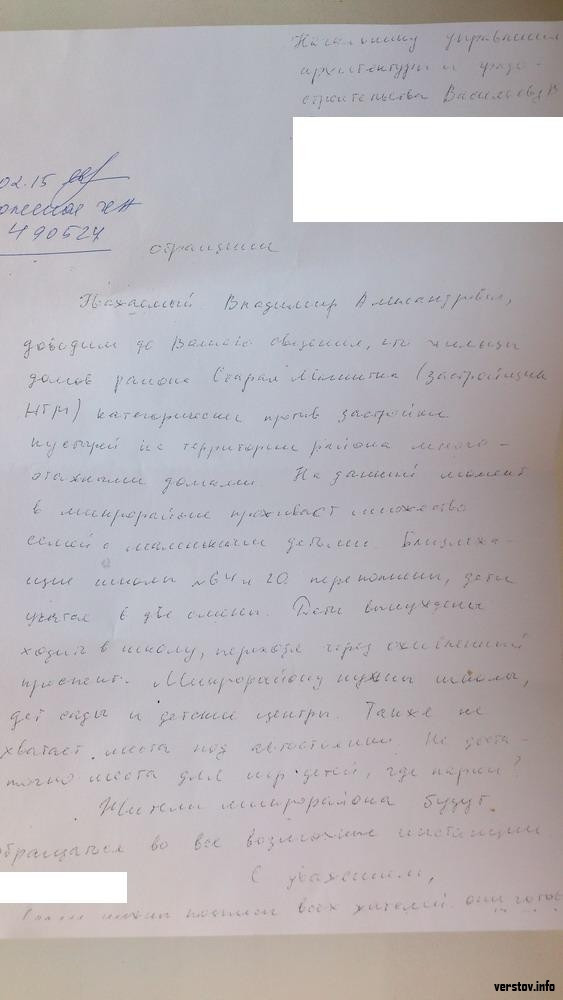 Начальнику управления
архитектуры и градо-
строительства Васильеву В
02.15
490524
обращение
Уважаемый Владимир Александрович,
доводим до Вашего сведения, что жильцы
домов района Старая Магнитка (застройщик
НТМ) категорически против застройки
пустырей на территории района много-
этажными домами. На данный момент
в микрорайоне проживает множество
семей с маленькими детьми. Близлежа-
щие школы №64 и 20 переполнены, дети
учатся в две смены. Дети вынуждены
ходить в школу, переходя через оживленный
проспект. Микрорайону нужны школы,
дет сады и детские центры. Также не
хватает места под автостоянки. Не доста-
точно места для игр детей, где парки?
Жители микрорайона будут
обращаться во все возможные инстанции.
С уважением,
нужны подписи всех жителей они готов
verstov.info